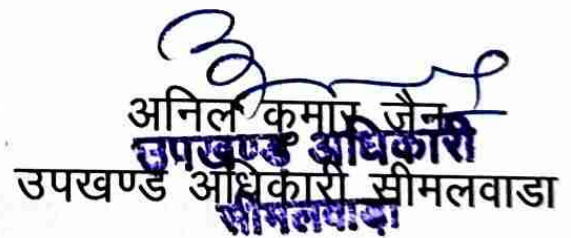 अनिल कुमार जैन
उपखण्ड अधिकारी
उपखण्ड अधिकारी सीमलवाडा
सीमलवाड़ा